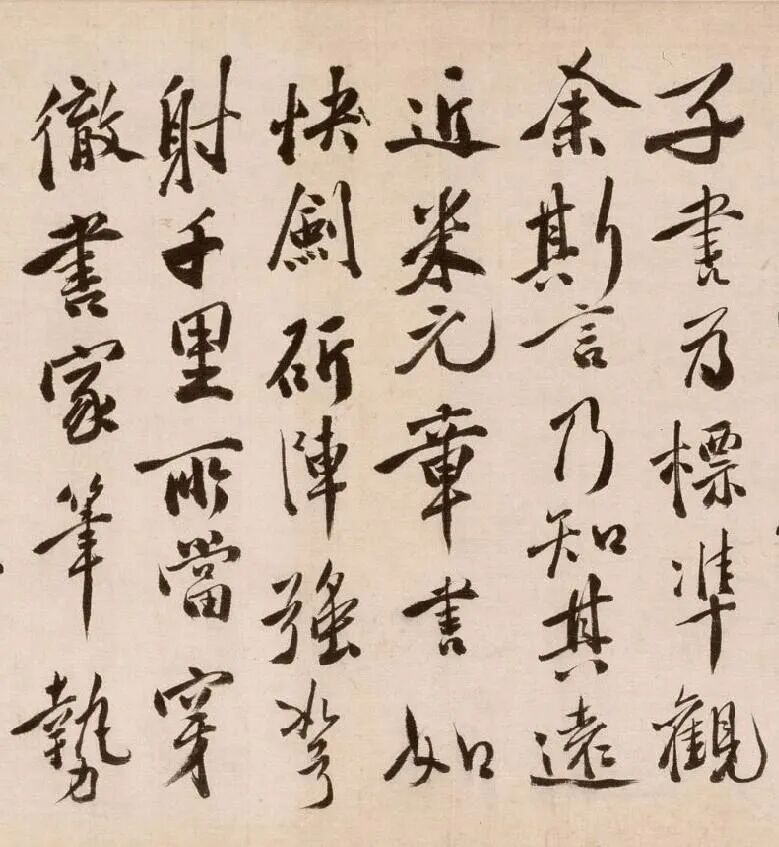 子書為標準觀
余斯言乃知其遠
近米元章書如
快劍斫陣強弩
射千里所當穿
徹書家筆勢